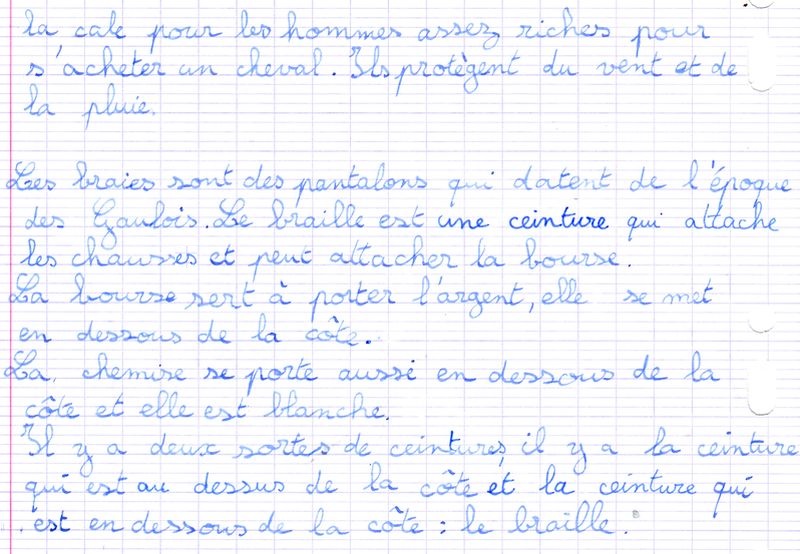 la cale pour les hommes assez riches pour
s'acheter un cheval. Ils protègent du vent et de
la pluie.
Les braies sont des pantalons qui datent de l'époque
des Gaulois. Le braille est une ceinture qui attache
les chausses et peut attacher la bourse.
La bourse sert à porter l'argent, elle se met
en dessous de la côte.
La chemise se porte aussi en dessous de la
côte et elle est blanche.
Il y a deux sortes de ceintures, il y a la ceinture
qui est au dessus de la côte et la ceinture qui
est en dessous de la côte : le braille.